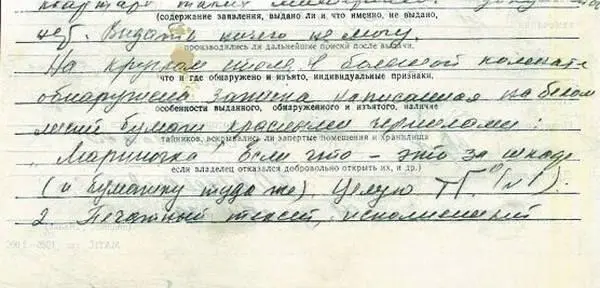 квартире таких
(содержание заявления, выдано ли и что именно, не выдано,
нет. Выдать ничего не могу.
производились ли дальнейшие поиски после выдачи.
На круглом столе в большой комнате
что и где обнаружено и изъято, индивидуальные признаки,
обнаружена записка написанная на белом
особенности выданного, обнаруженного и изъятого, наличие
листе бумаги красными чернилами:
тайников, вскрывались ли запертые помещения и хранилища
„Мариночка" Если что – это за шкаф
если владелец отказался добровольно открыть их, и др.)
(и бумажку туда же). Целую ТГ." (№1).
2 Печатный текст, исполненный